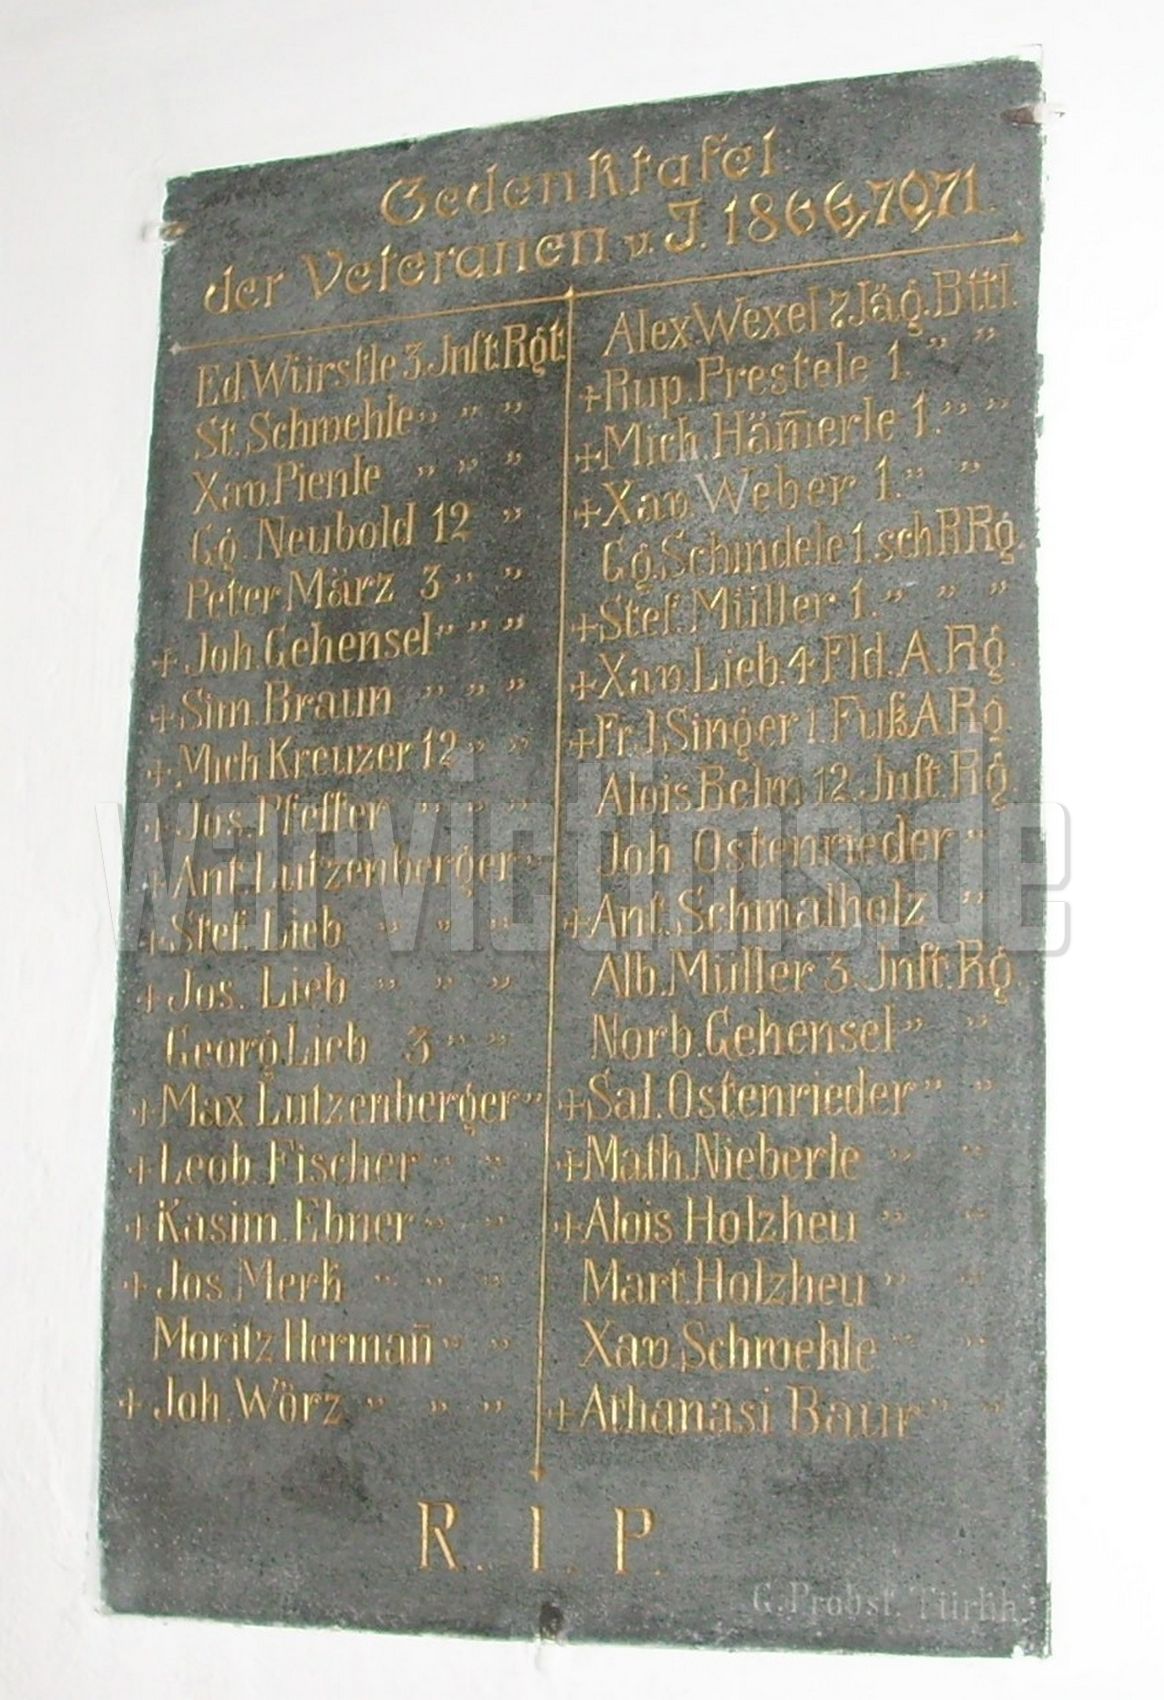 Gedenktafel
der Veteranen v. J. 1866,70,71.
Ed. Würstle 3. Inft. Rgt.
St. Schwehle " " "
Xav. Pienle " " "
Gg. Neubold 12 "
Peter März 3 " "
+ Joh. Gehensel " " "
+ Sim. Braun " " "
+ Mich Kreuzer 12 " "
+ Jos. Pfeffer " " "
+ Ant. Lutzenberger "
+ Stef. Lieb " " "
+ Jos. Lieb " " "
Georg Lieb 3 " "
+ Max Lutzenberger "
+ Leob. Fischer " "
+ Kasim. Ebner " "
+ Jos. Merk " " "
Moritz Herman̄ " "
+ Joh. Wörz " " "
Alex. Wexel 7 Jäg. Bttl.
+ Rup. Prestele 1. " "
+ Mich. Häm̄erle 1. " "
+ Xav. Weber 1. " "
Gg. Schindele 1. sch R Rg.
+ Stef. Müller 1. " " "
+ Xav. Lieb. 4 Fld. A. Rg.
+ Fr. J. Singer 1 Fuß A Rg.
Alois Belm 12. Inft. Rg.
Joh. Ostenrieder "
+ Ant. Schmalholz "
Alb. Müller 3. Inft. Rg.
Norb. Gehensel " "
+ Sal. Ostenrieder " "
+ Math. Nieberle " "
+ Alois Holzheu " "
Mart. Holzheu " "
Xav. Schwehle " "
+ Athanasi Baur " "
R. I. P.
G. Probst. Türkh.
warvictims.de